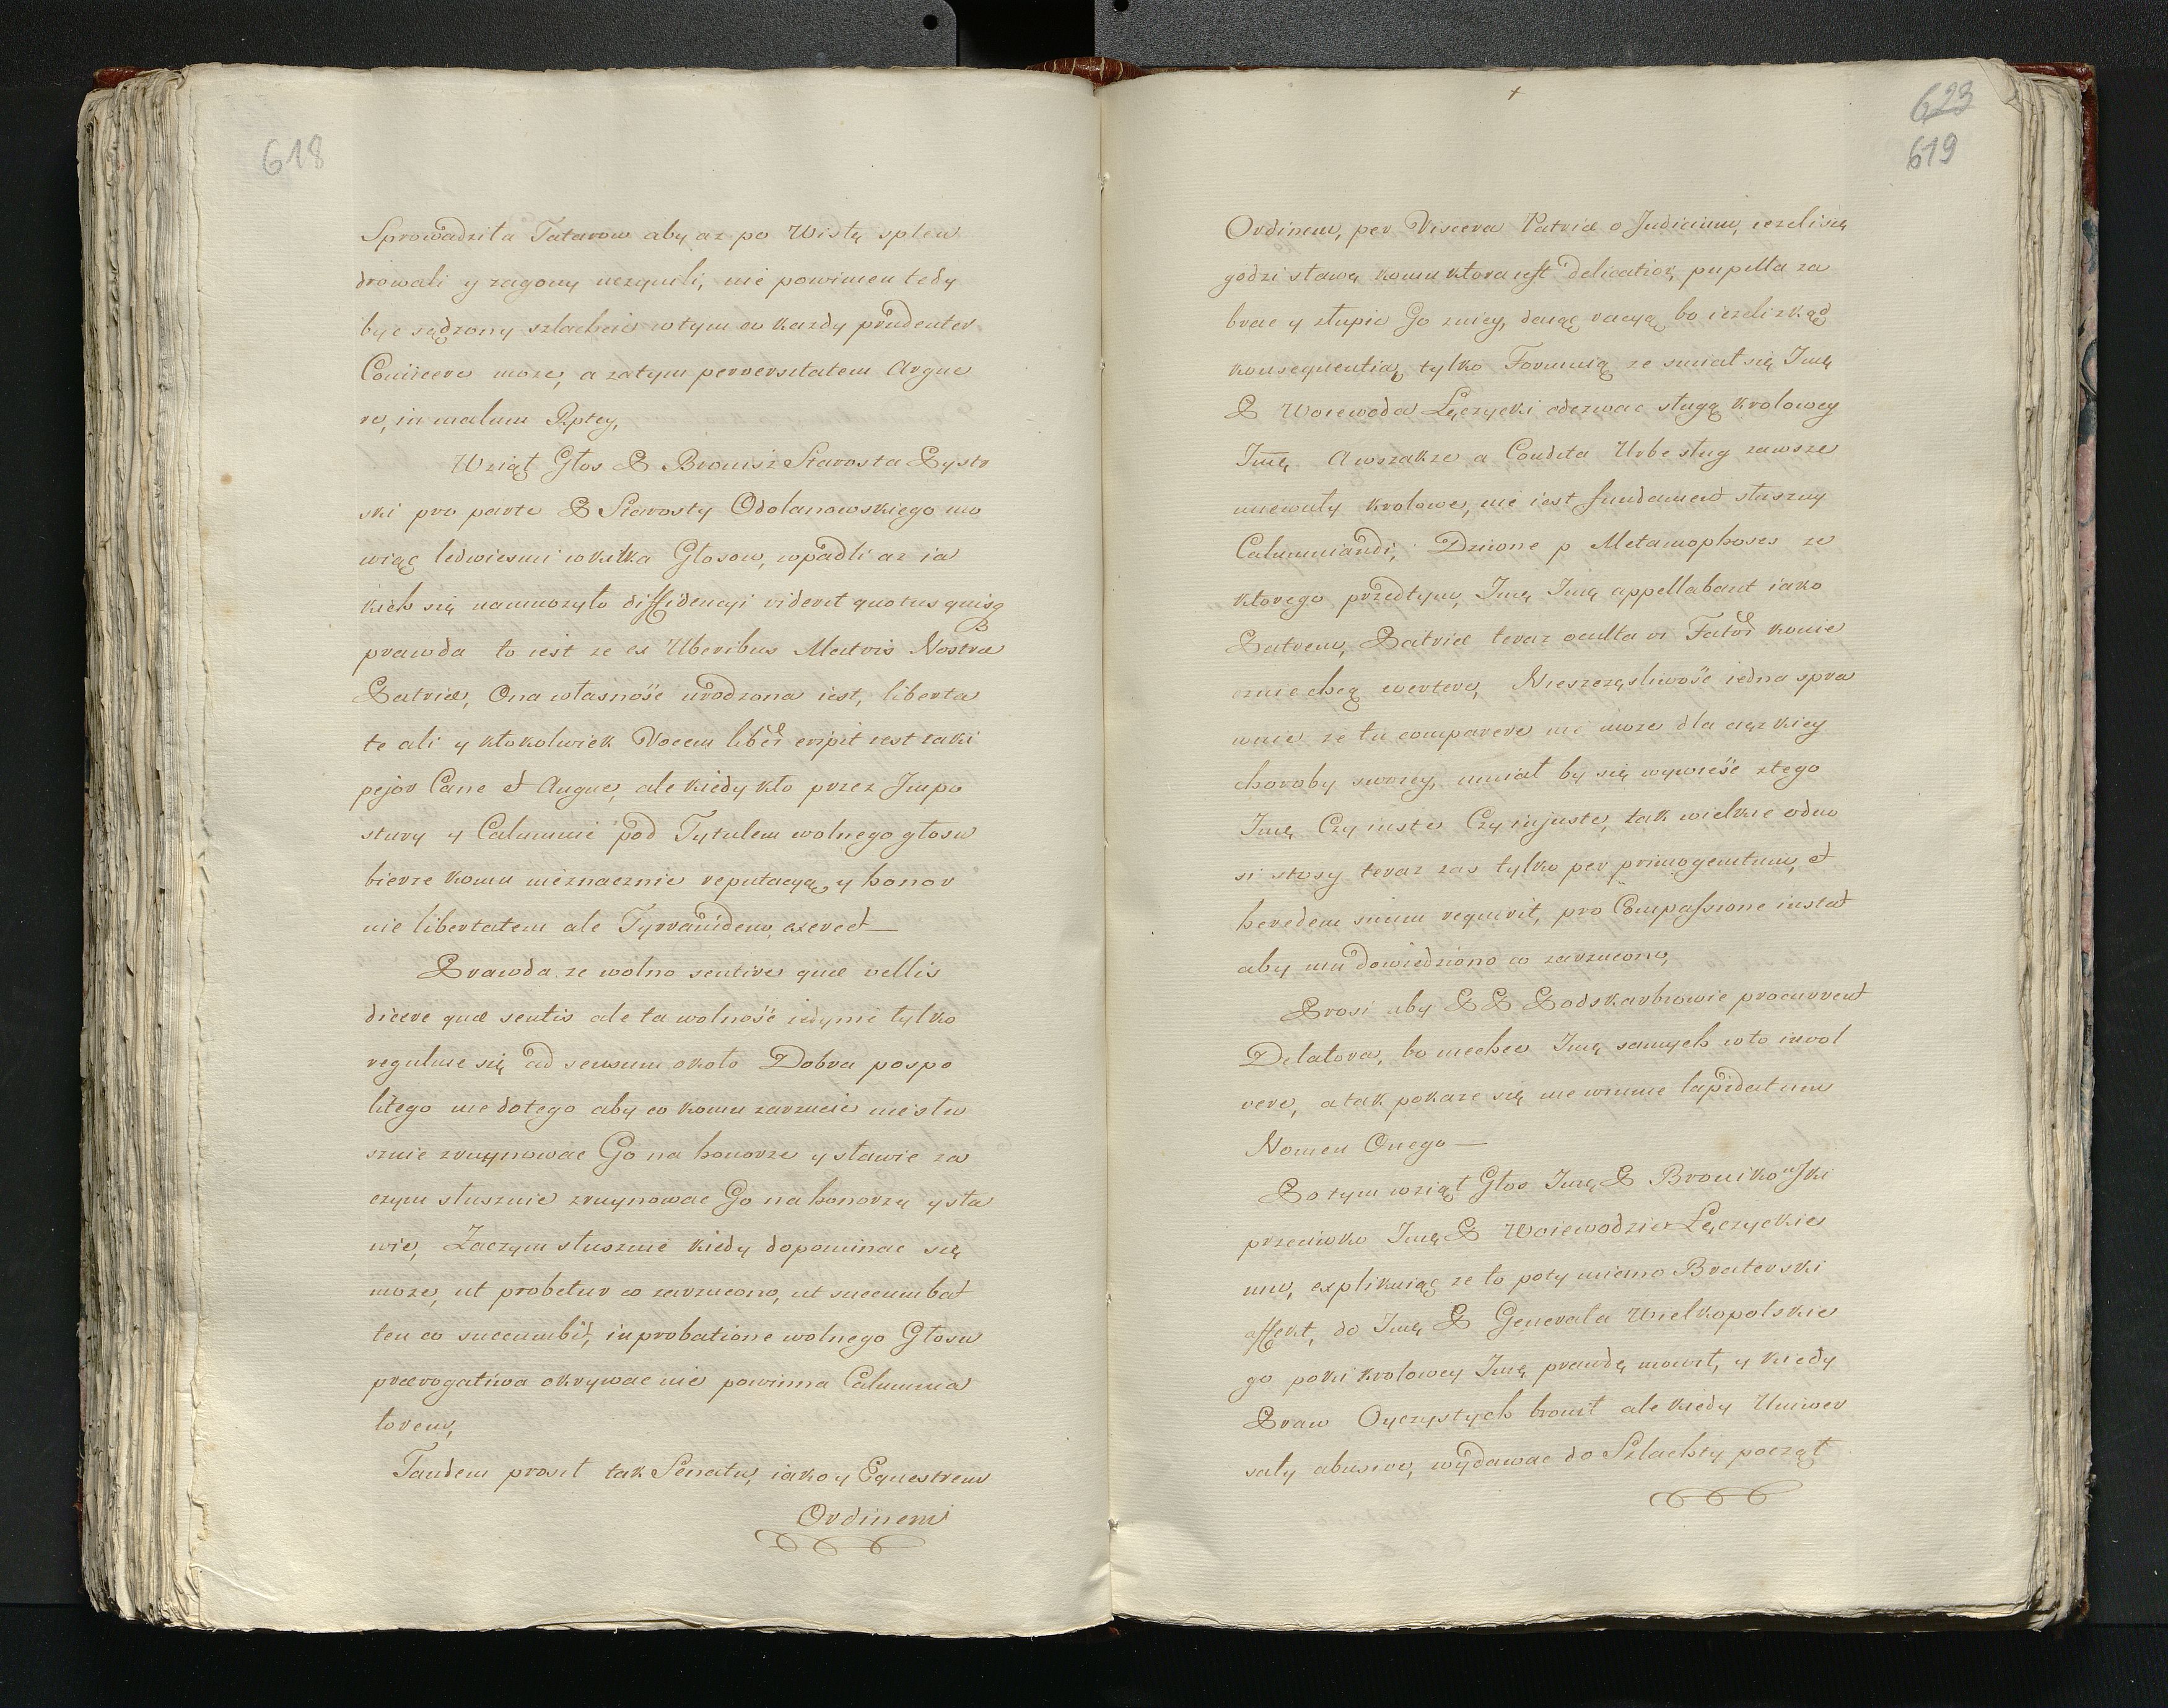 618
Sprowadziła Tatarow aby az po Wisłę splen
drowali y zagony uczynili, nie powinien tedy
być sądzony szlachcic wtym co każdy prudenter
Coniicere moze, a zatym perversitatem Argue
re, in malum Rptey,
Wziął Głos P Bronisz Starosta Pyzdr
ski pro parte P Starosty Odolanowskiego mo
wiąc ledwiesmi w kilka Głosow, wpadli az ia
kich się namnozyło diffidencyi viderit quotus quisq
prawda to iest ze ex Uberibus Matris Nostræ
Patriæ, Ona własność urodzona iest, liberta
te ali y ktokolwiek Vocem liberã eripit iest taki
pejor Cane et Angue, ale kiedy kto przez Impo
stury y Calumnie pod Tytulem wolnego głosu
bierze komu nieznacznie reputacyą, y honor
nie libertatem ale Tyrranidem, exercet —
Prawda ze wolno sentire quæ vellis
dicere quæ sentis ale ta wolność iedynie tylko
reguluie się ad sensum około Dobra pospo
litego nie dotego aby co komu zarzucić niesłu
sznie zruynowac Go na honorze y sławie za
czym słusznie zruynowac Go na honorzę y sła
wie, Zaczym słusznie kiedy dopominac się
moze, ut probetur co zarzucono, ut succumbat
ten co succumbit, in probatione wolnego Głosu
prærogatiwa okrywac nie powinna Calumnia
torem,
Tandem prosił tak Senatu, iako y Equestrem
Ordinem
623
619
Ordinem, per Viscera Patriæ o Judicium, iezeli się
godzi sławę komu ktora iest delicatior, pupilla za
brac y złupic Go zniey, daiąc racyą, bo iezeli zkąd
konsequentią, tylko Formuią ze smiał się Jmę
P Woiewoda Łęczycki odezwac sługą krolowey
Jmę. A wszakze a Condita Urbe sług zawsze
miewały krolowe, nie iest fundament słuszny
Calumniandi, Dziwne p Metamophoses ze
ktorego przedtym, Jmę Jmę appellabant iako
Patrem, Patriæ teraz oculta vi Fator̃ konie
cznie chcą evertere, Nieszczęsliwość iedna spra
wnie ze tu comparere nie moze dla cięzkiey
choroby swoiey, umiał by się wywieść ztego
Jmę Czy iuste Czy injuste, tak wielkie odno
si stosy teraz zas tylko per primogenitum, et
heredem suum requirit, pro Compassione instat
aby mu dowiedziono co zarzucono,
Prosi aby P P Podskarbiowie procurrent
Delatora, bo niechce Jmę samych w to invol
vere, a tak pokaze się niewinnie lapidatum
Nomen Onego —
Potym wziął Głos Jmę P Bronikowski
przeciwko Jmę P Woiewodzie Łęczyckie
mu, explikuiąc ze to poty miano Braterski
affekt, do Jmę P Generała Wielkopolskie
go poki krolowey Jmę prawdę mowił, y kiedy
Praw Oyczystych bronił ale kiedy Uniwer
sały abusive, wydawac do Szlachty począł